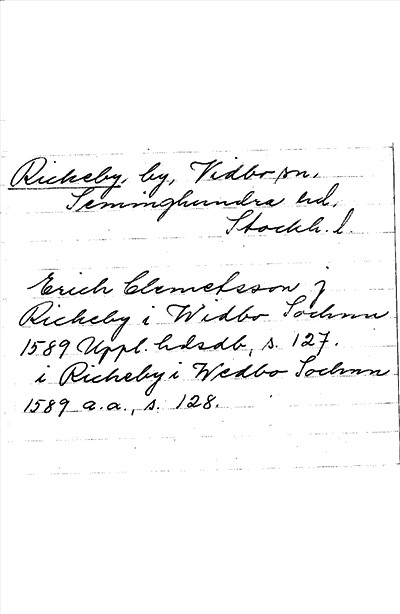 Rickeby, by, Vidbo sn,
Seminghundra hd,
Stockh. l.
Erich Clemetsson j
Rickeby i Widbo Sochnn
1589 Uppl. hdsdb, s. 127.
i Rickeby i Wedbo Sochnn
1589 a.a., s. 128.